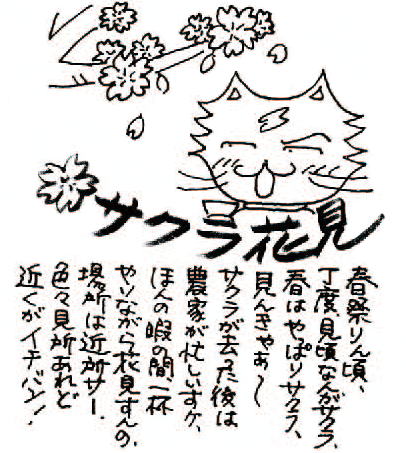 サクラ花見
春祭りん頃、
丁度見頃なんがサクラ、
春はやっぱりサクラ、
見んきゃぁ〜
サクラが去った後は
農家が忙しいすケ、
ほんの暇の間、一杯
やりながら花見すんの、
場所は近所サー、
色々見所あれど
近くがイチバン!